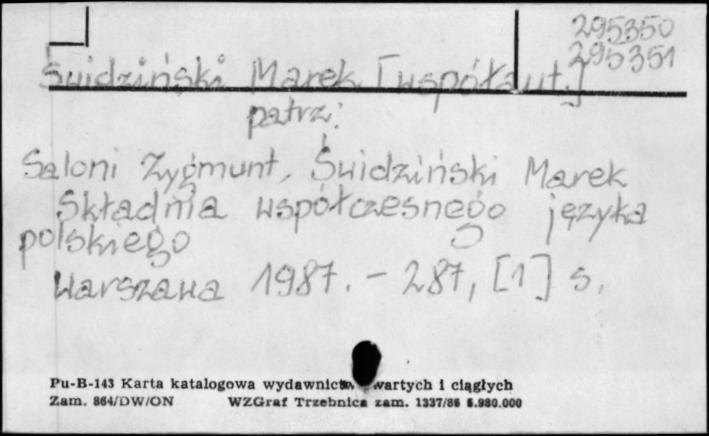 295350
295351
Świdziński Marek [współaut.]
patrz:
Saloni Zygmunt, Świdziński Marek
Składnia współczesnego języka
polskiego
Warszawa 1987. – 287, [1] s.
Pu-B-143 Karta katalogowa wydawnictw zwartych i ciągłych
Zam. 864/DW/ON WZGraf Trzebnica zam. 1337/86 5.980.000